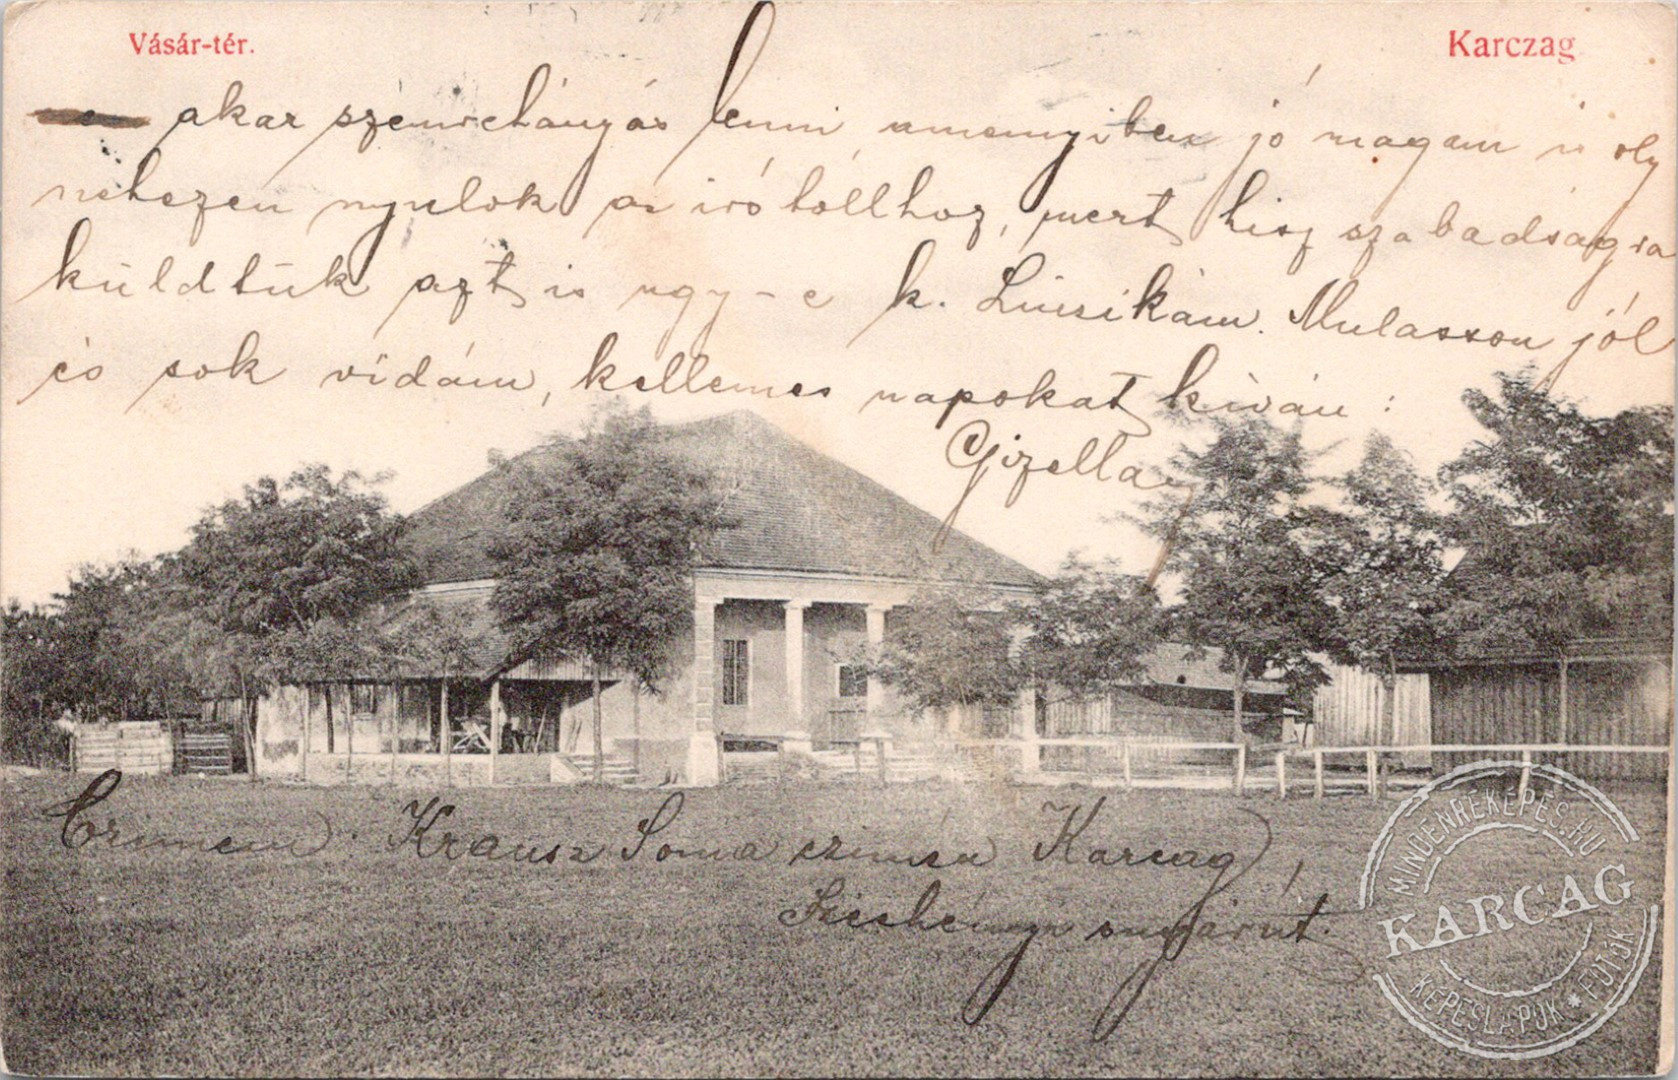 Vásár-tér.
Karczag
akar szemrehányás lenni amennyiben jó magam is oly
nehezen nyulok az iró tollhoz, mert hisz szabadságra
küldtük azt is ugy-e k. Lincsikám. Mulasson jól
és sok vidám, kellemes napokat kíván:
Gizella
Czimem: Krausz Soma czimén Karcag,
Széchényi sugárút.
MINDENKÉPES.HU
KARCAG
KÉPESLAPOK * FOTÓK